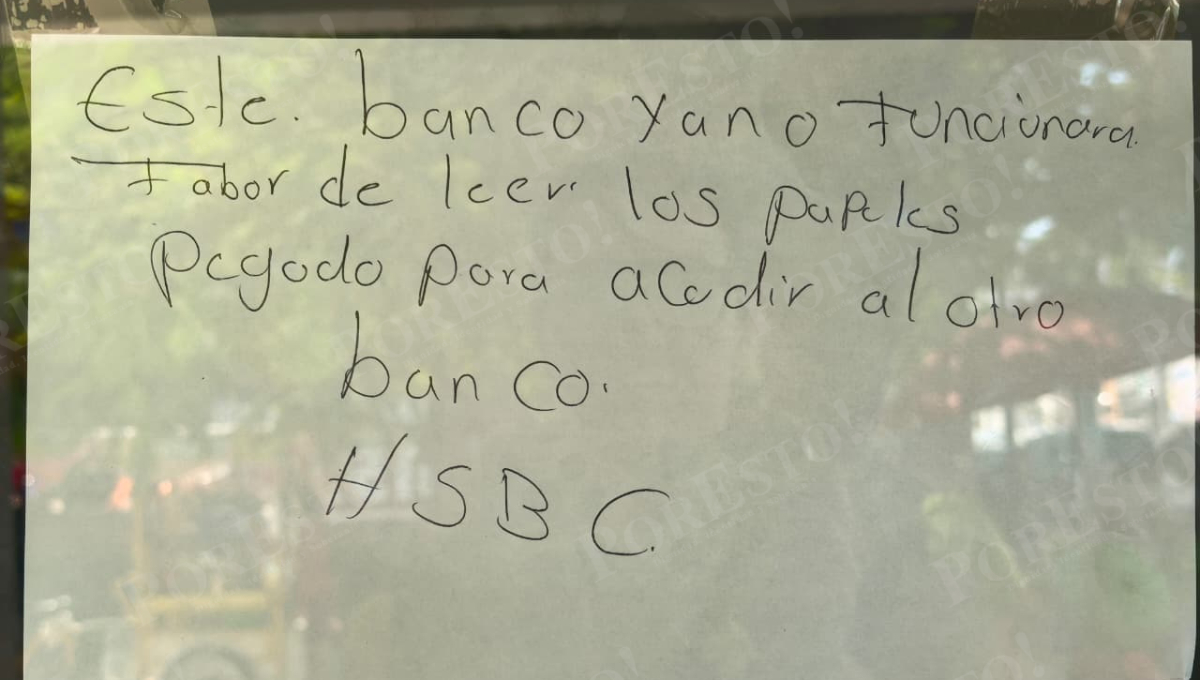 Este. banco Yano Funcionara.
Fabor de leer los papeles
pegodo para acodir al otro
banco.
HSBC.
PORESTO!